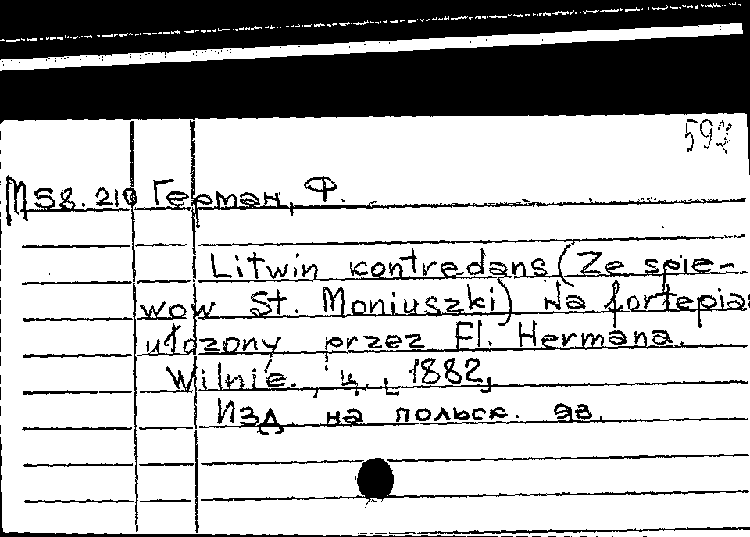 597
M58.210 Герман, Ф.
Litwin kontredans (Ze spie-
wow St. Moniuszki) Na fortepia
ułozony przez Fl. Hermana.
Wilnie., ц., 1882,
Изд на польск. яз.